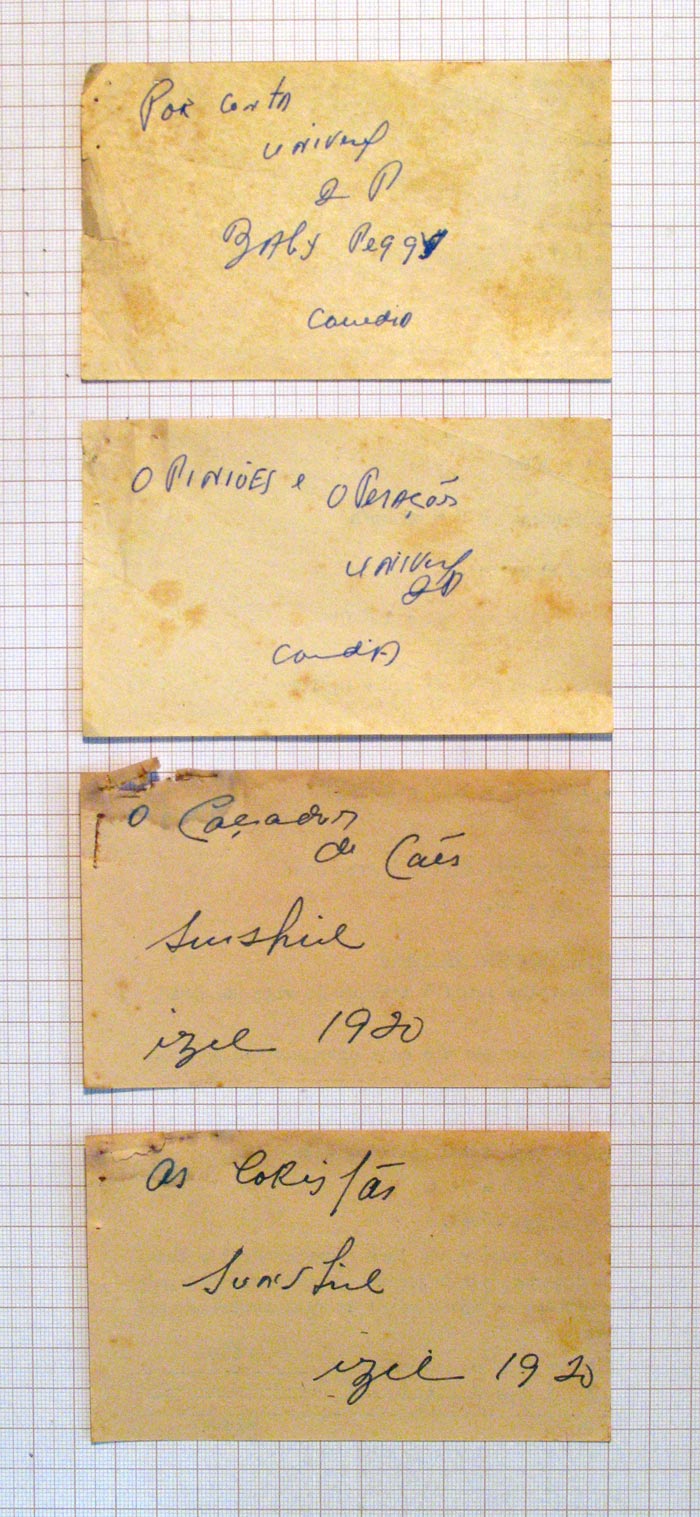 Por conta
univesl
2 P
Baby Peggy
comedia
O Piniões e Operaçõs
univesl
2P
comdia
O Caçador
de Cães
Sunshiel
izel 1920
As Coristãs
Sunshiel
izel 1920